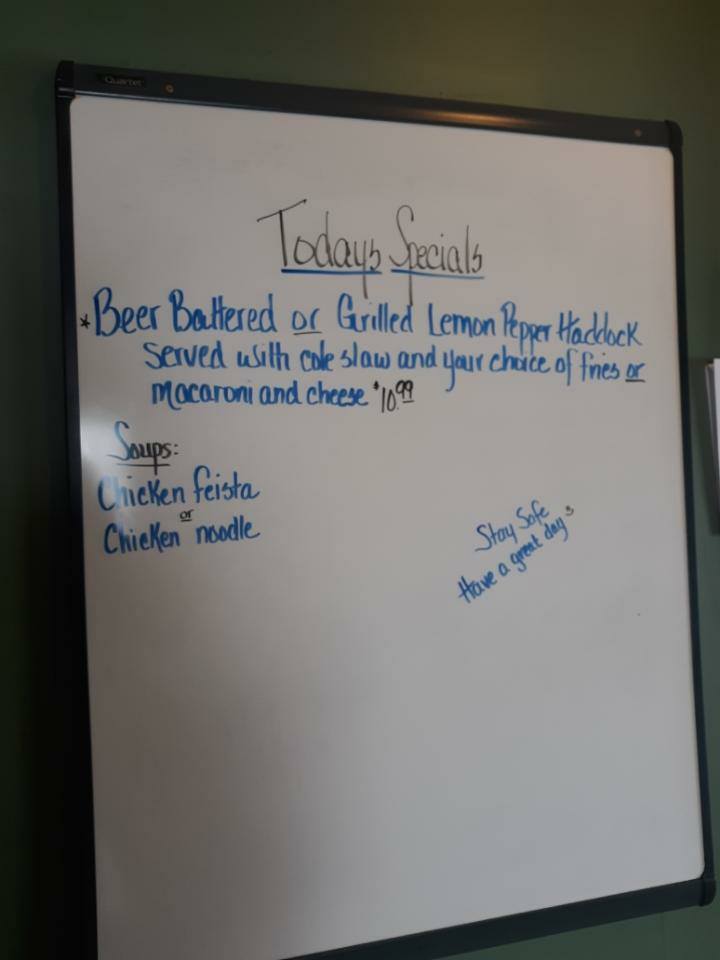 Quartet
Todays Specials
*Beer Battered or Grilled Lemon Pepper Haddock
Served with cole slaw and your choice of fries or
macaroni and cheese $10.99
Soups:
Chicken feista
or
Chicken noodle
Stay Safe
Have a great day